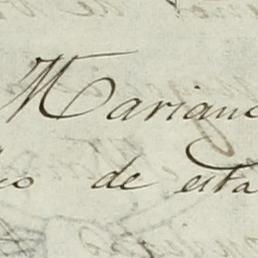 Mariano
de esta